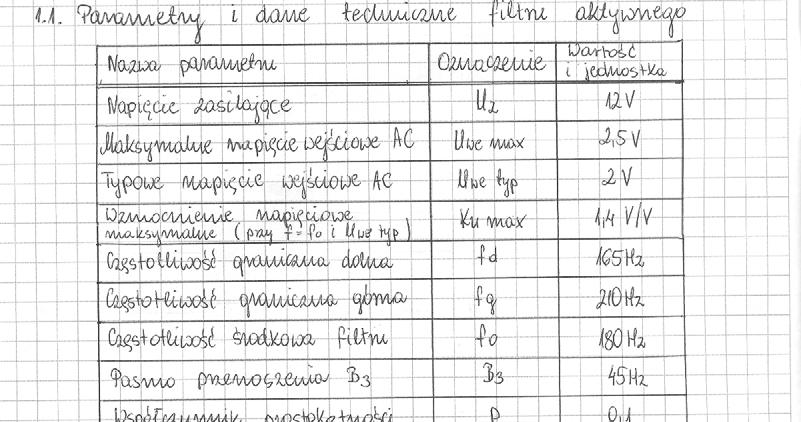 1.1. Parametry i dane techniczne filtru aktywnego
Nazwa parametru Oznaczenie Wartość i jednostka
Napięcie zasilające Uz 12 V
Maksymalne napięcie wejściowe AC Uwe max 2,5 V
Typowe napięcie wejściowe AC Uwe typ 2 V
Wzmocnienie napięciowe
maksymalne (przy f = fo i Uwe typ) Ku max 1,4 V/V
Częstotliwość graniczna dolna fd 165Hz
Częstotliwość graniczna górna fg 210Hz
Częstotliwość środkowa filtru fo 180Hz
Pasmo przenoszenia B3 B3 45Hz
Współczynnik prostokątności p 0,1